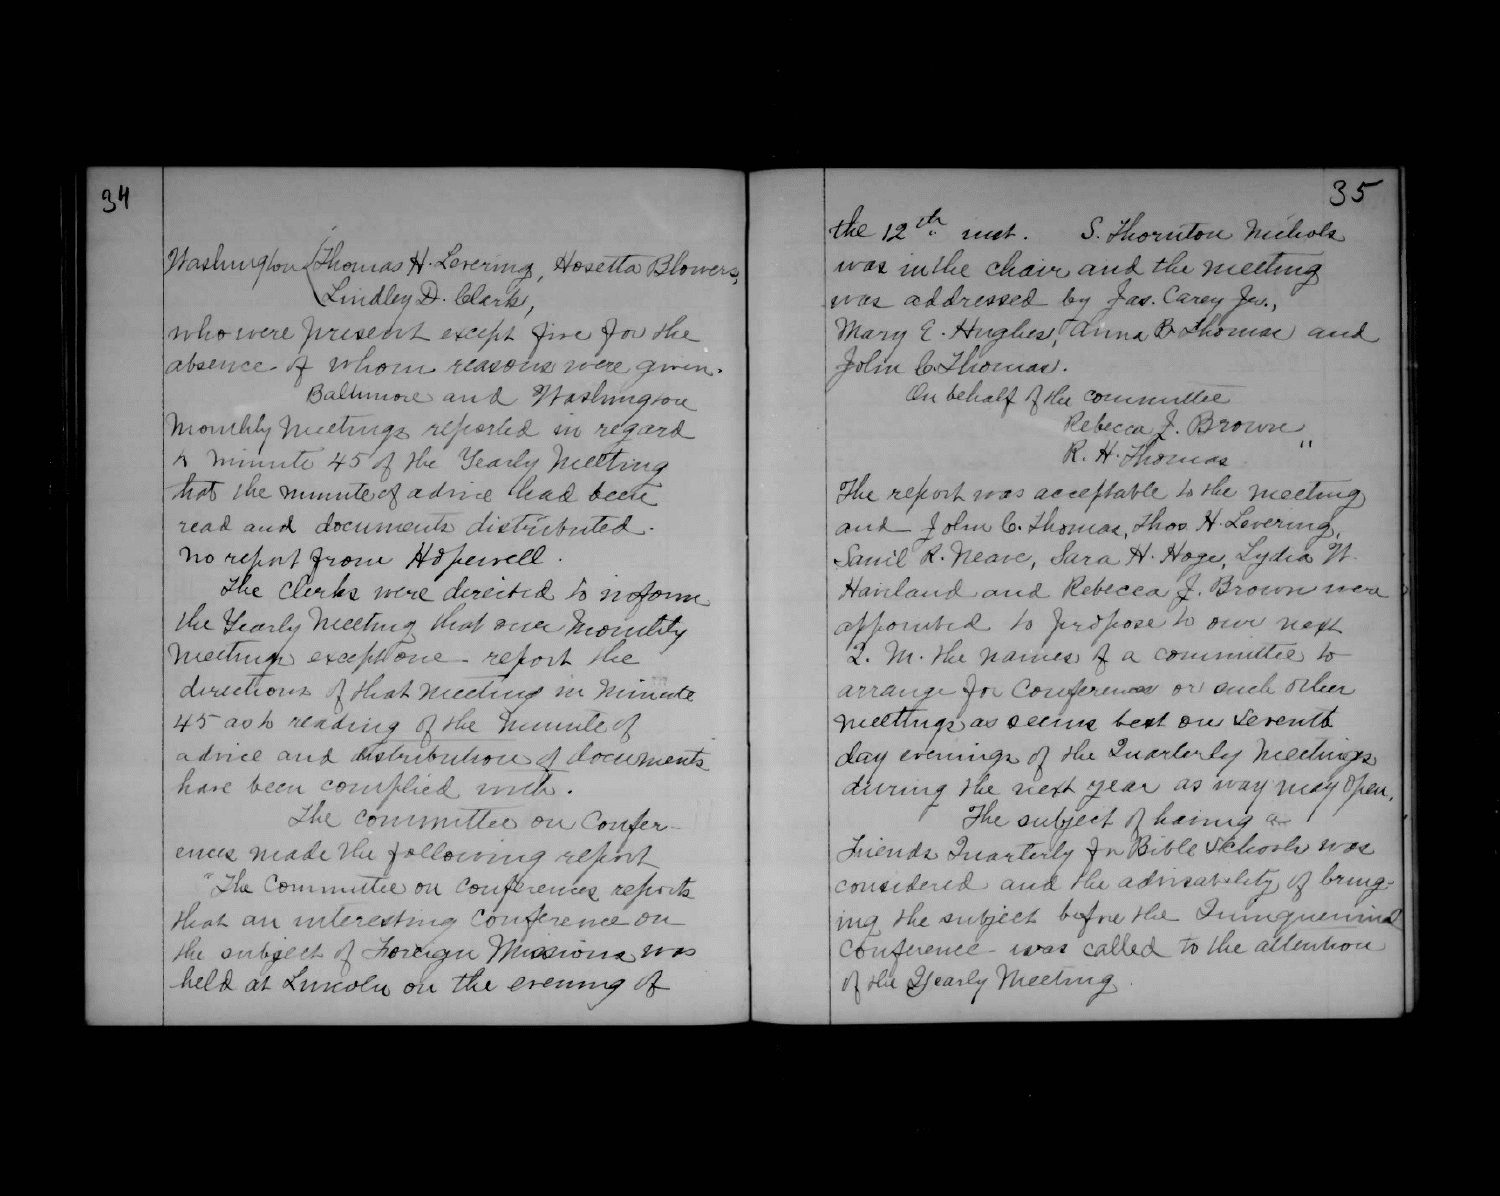 34
Washington (Thomas H. Levering, Hosetta Blowers,
Lindley D. Clark,
who were present except five for the
absence of whom reasons were given.
Baltimore and Washington
Monthly Meetings reported in regard
to minute 45 of the Yearly Meeting
that the minute of advice had been
read and documents distributed.
No report from Hopewell.
The Clerks were directed to inform
the Yearly Meeting that our Monthly
Meetings except one report the
directions of that meeting in minute
45 as to reading of the minute of
advice and distribution of documents
have been complied with.
The committee on Confer-
ences made the following report
"The Committee on Conferences reports
that an interesting Conference on
the subject of Foreign Missions was
held at Lincoln on the evening of
35
the 12th inst. S. Thornton Nichols
was in the chair and the meeting
was addressed by Jas. Carey Jr.,
Mary E. Hughes, Anna B. Thomas and
John C. Thomas.
On behalf of the committee
Rebecca J. Brown "
R. H. Thomas
The report was acceptable to the meeting
and John C. Thomas, Thos H. Levering,
Samll R. Neave, Sara H. Hoge, Lydia W.
Haviland and Rebecca J. Brown were
appointed to propose to our next
Q. M. the names of a committee to
arrange for Conferences or such other
meetings as seems best on Seventh
day evenings of the Quarterly Meetings
during the next year as way may open.
The subject of having a
Friends Quarterly for Bible Schools was
considered and the advisability of bring-
ing the subject before the Quinquennial
Conference was called to the attention
of the Yearly Meeting.